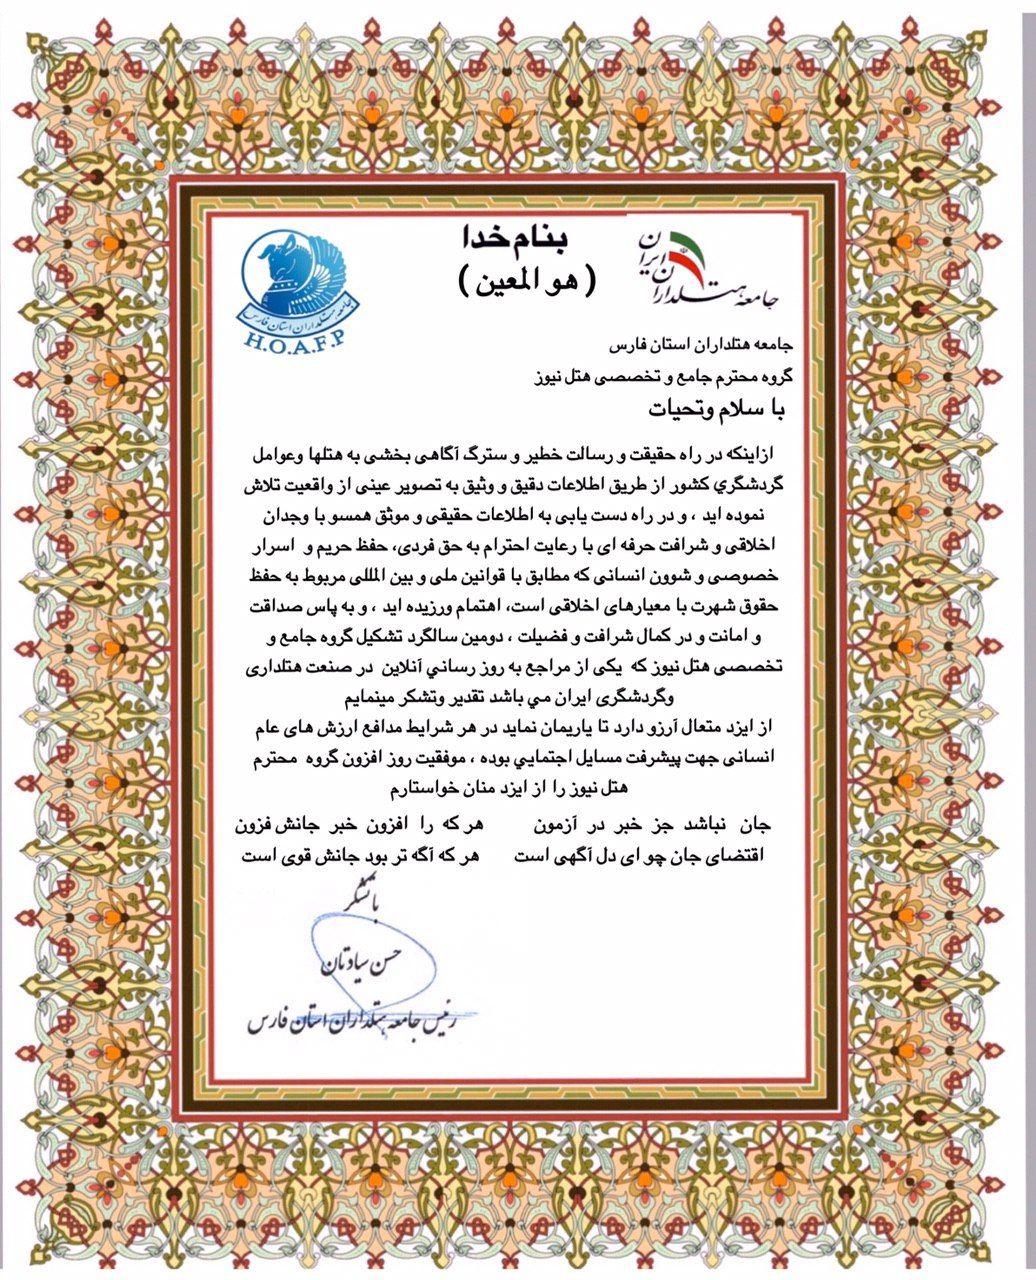 بنام خدا
( هو المعین )
جامعه هتلداران ایران
جامعه هتلداران استان فارس
H.O.A.F.P
جامعه هتلداران استان فارس
گروه محترم جامع و تخصصی هتل نیوز
با سلام وتحیات
ازاینکه در راه حقیقت و رسالت خطیر و سترگ آگاهی بخشی به هتلها وعوامل
گردشگري کشور از طریق اطلاعات دقیق و وثیق به تصویر عینی از واقعیت تلاش
نموده اید ، و در راه دست یابی به اطلاعات حقیقی و موثق همسو با وجدان
اخلاقی و شرافت حرفه ای با رعایت احترام به حق فردی، حفظ حریم و اسرار
خصوصی و شوون انسانی که مطابق با قوانین ملی و بین المللی مربوط به حفظ
حقوق شهرت با معیارهای اخلاقی است، اهتمام ورزیده اید ، و به پاس صداقت
و امانت و در کمال شرافت و فضیلت ، دومین سالگرد تشکیل گروه جامع و
تخصصی هتل نیوز که یکی از مراجع به روز رساني آنلاین در صنعت هتلداری
وگردشگری ایران می باشد تقدیر وتشکر مینمایم
از ایزد متعال آرزو دارد تا یاریمان نماید در هر شرایط مدافع ارزش های عام
انسانی جهت پیشرفت مسایل اجتمایي بوده ، موفقیت روز افزون گروه محترم
هتل نیوز را از ایزد منان خواستارم
جان نباشد جز خبر در آزمون هر که را افزون خبر جانش فزون
اقتضای جان چو ای دل آگهی است هر که آگه تر بود جانش قوی است
با تشکر
حسن سیادتان
رئیس جامعه هتلداران استان فارس